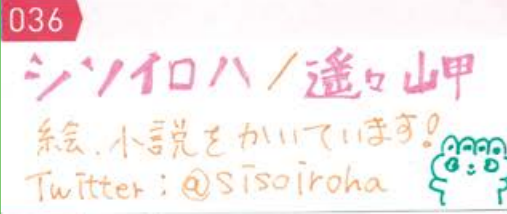 036
シソイロハ/遥々山甲
絵、小説をかいています!
Twitter:@sisoiroha